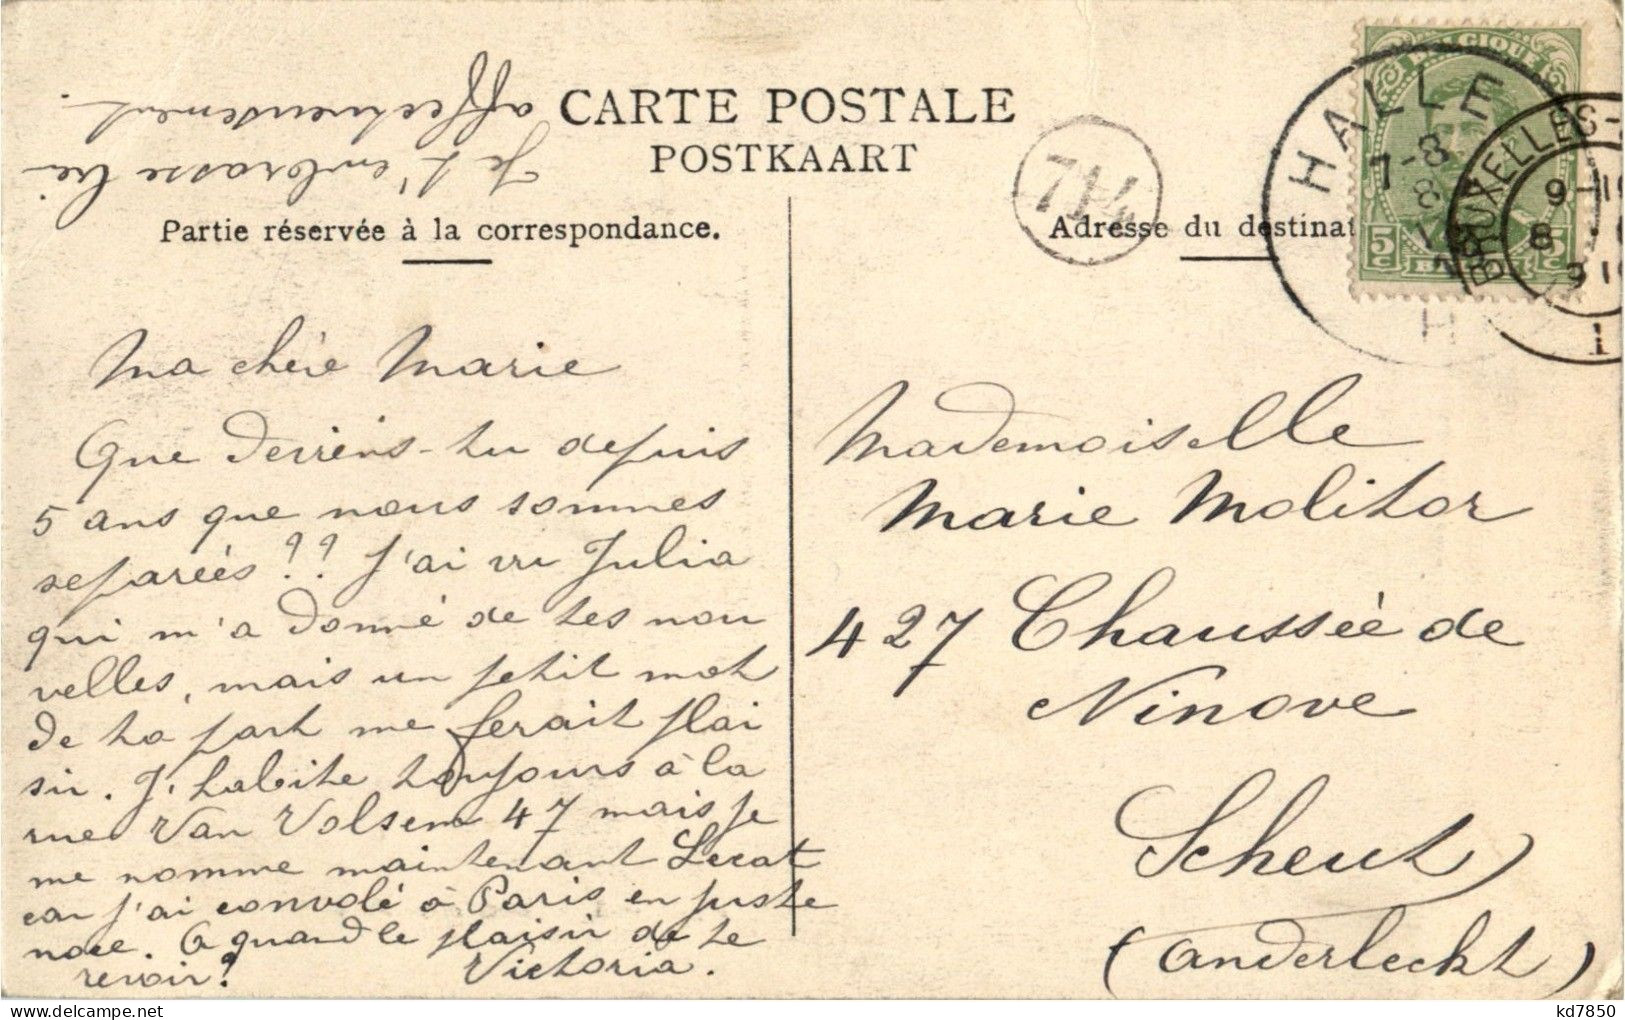 Je t'embrasse bi
affectueusement.
CARTE POSTALE
POSTKAART
Partie réservée à la correspondance.
Adresse du destinat
BELGIQUE
5 c
5 c
HALLE
7-8
8
H
BRUXELLES-
9-10
8
1
7 1/4
Ma chère Marie
Que deviens-tu depuis
5 ans que nous sommes
separées?? J'ai vu Julia
qui m'a donné de tes nou
velles, mais un petit mot
de ta part me ferait plai
sir. J'habite toujours à la
rue Van Volsem 47 mais je
me nomme maintenant Lecat
car j'ai convolé à Paris en juste
noce. A quand le plaisir de te
revoir? Victoria.
Mademoiselle
Marie Molitor
427 Chaussée de
Ninove
Scheut
(Anderleckt)
delcampe.net
kd7850